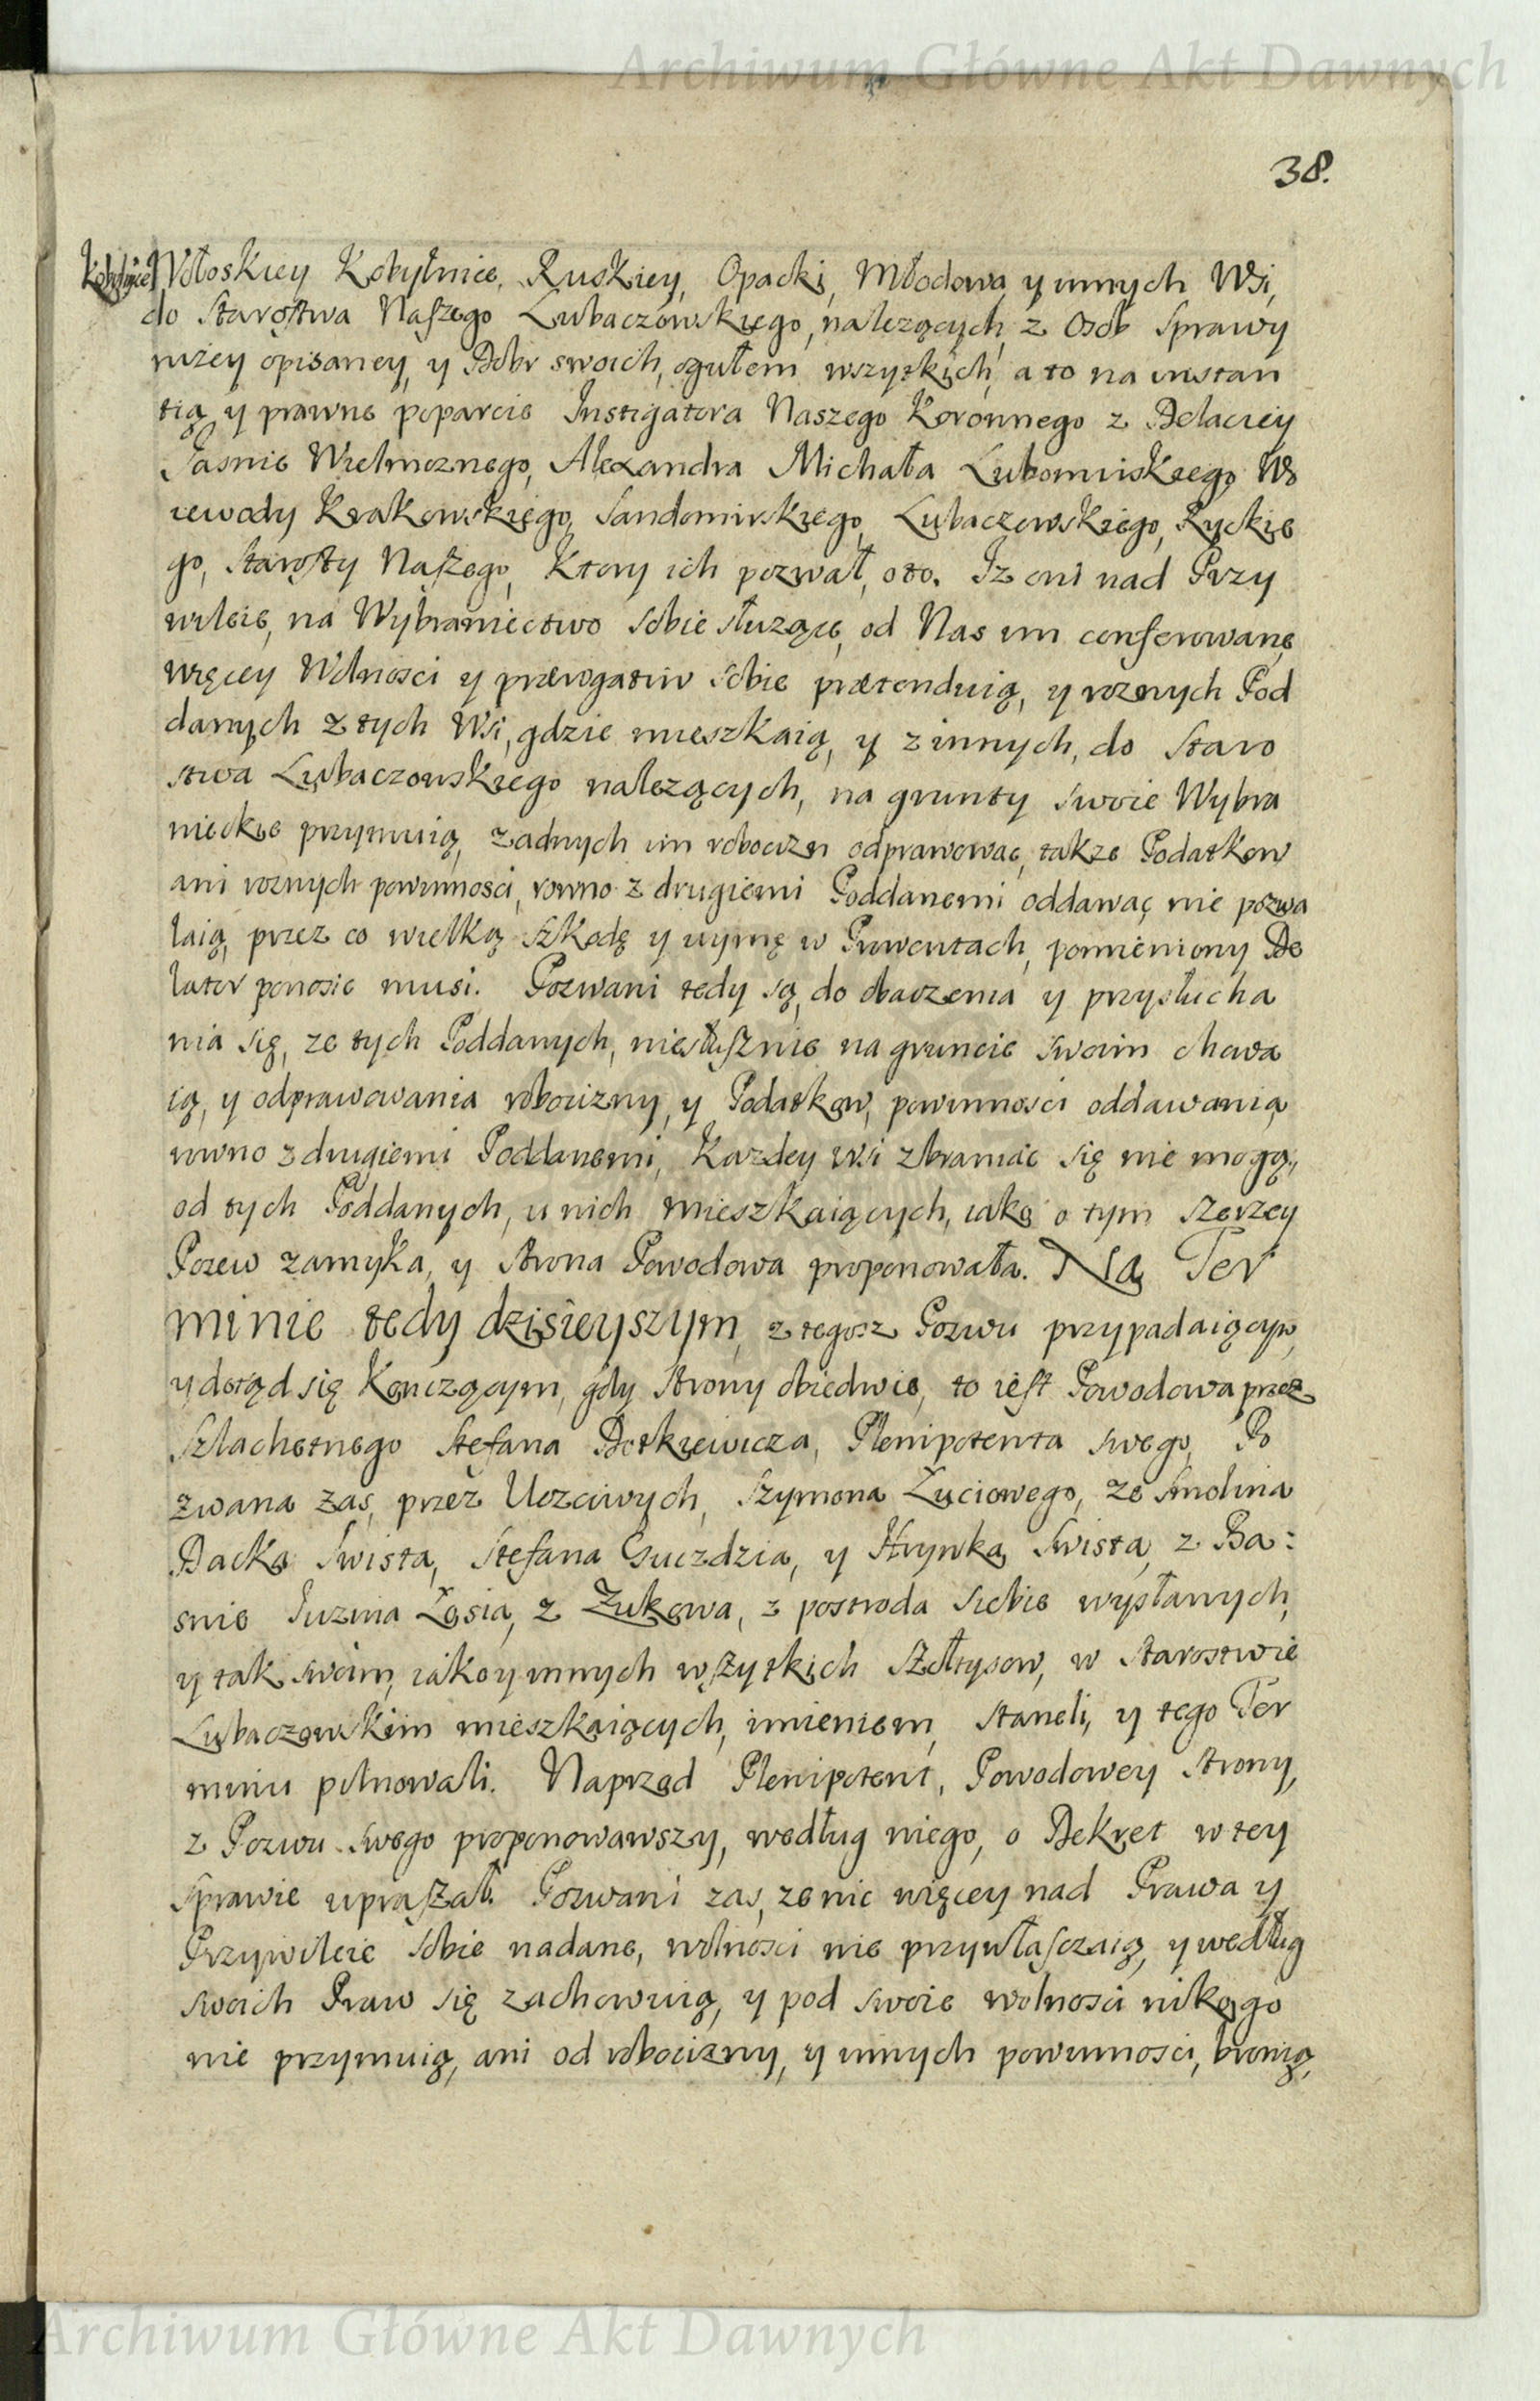 Archiwum Główne Akt Dawnych
38.
Kobylnice Wołoskiey Kobyłnice, Ruskiey, Opacki, Młodowa y innych Wsi,
do Starostwa Naszego Lubaczowskiego, nalezących, z Osob Sprawy
nizey opisaney, y Dobr swoich, ogułem wszytkich, a to na instan
tią y prawne poparcie Instigatora Naszego Koronnego z Delaciey
Jasnie Wielmoznego, Alexandra Michała Lubomirskiego Wo
iewody Krakowskiego, Sandomirskiego, Lubaczowskiego, Ryckie
go, Starosty Naszego, Ktory ich pozwał, oto. Iz oni nad Przy
wileie, na Wybraniectwo sobie słuzące, od Nas im conferowane
więcey Wolnosci y prærogatiw sobie prætenduią, y roznych Pod
danych z tych Wsi, gdzie mieszkaią, y z innych, do Staro
stwa Lubaczowskiego nalezących, na grunty swoie Wybra
nieckie przymuią, zadnych im robocizn odprawowac, takze Podatkow
ani roznych powinnosci, rowno z drugiemi Poddanemi oddawac nie pozwa
laią, przez co wielką szkodę y uymę w Prowentach, pomieniony De
lator ponosic musi. Pozwani tedy są, do obaczenia y przysłucha
nia się, ze tych Poddanych, niesłusznie na gruncie swoim chowa
ią, y odprawowania robocizny, y Podatkow, powinnosci oddawania
rowno z drugiemi Poddanemi, Kazdey Wsi zbraniac się nie mogą,
od tych Poddanych, u nich mieszkaiących, iako o tym szerzey
Pozew zamyka, y Strona Powodowa proponowała. Na Ter
minie tedy dzisieyszym, z tegosz Pozwu przypadaiącym,
y dotąd się Konczącym, gdy Strony obiedwie, to iest Powodowa przez
Szlachetnego Stefana Dotkiewicza, Plenipotenta swego, Po
zwana zas, przez Uczciwych, Szymona Zuciowego, ze Smolina
Dacka Swista, Stefana Guezdzia, y Hrynka Swista, z Ba:
snie Juzwa Łosia, z Zukowa, z postroda siebie wysłanych,
y tak swoim, iako y innych wszytkich Szołtysow, w Starostwie
Lubaczowskim mieszkaiących, imieniem, staneli, y tego Ter
minu pilnowali. Naprzod Plenipotent, Powodowey Strony,
z Pozwu swego proponowawszy, według niego, o Dekret w tey
sprawie upraszał. Pozwani zas, ze nic więcey nad Prawa y
Przywileie sobie nadane, wolnosci nie przywłasczaią, y według
swoich Praw się zachowuią, y pod swoie wolnosci nikogo
nie przymuią, ani od robocizny, y innych powinnosci, bronią,
Archiwum Główne Akt Dawnych